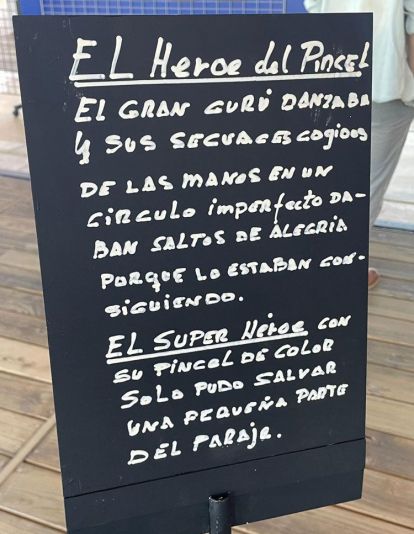 EL Heroe del Pincel
EL GRAN GURÚ DANZABA
Y SUS SECUACES COGIDOS
DE LAS MANOS EN UN
CIRCULO imperfecto DA-
BAN SALTOS DE ALEGRIA
PORQUE LO ESTABAN CON-
SIGUIENDO.
EL SUPER Héroe CON
SU PINCEL DE COLOR
SOLO PUDO SALVAR
UNA PEQUEÑA PARTE
DEL PARAJE.